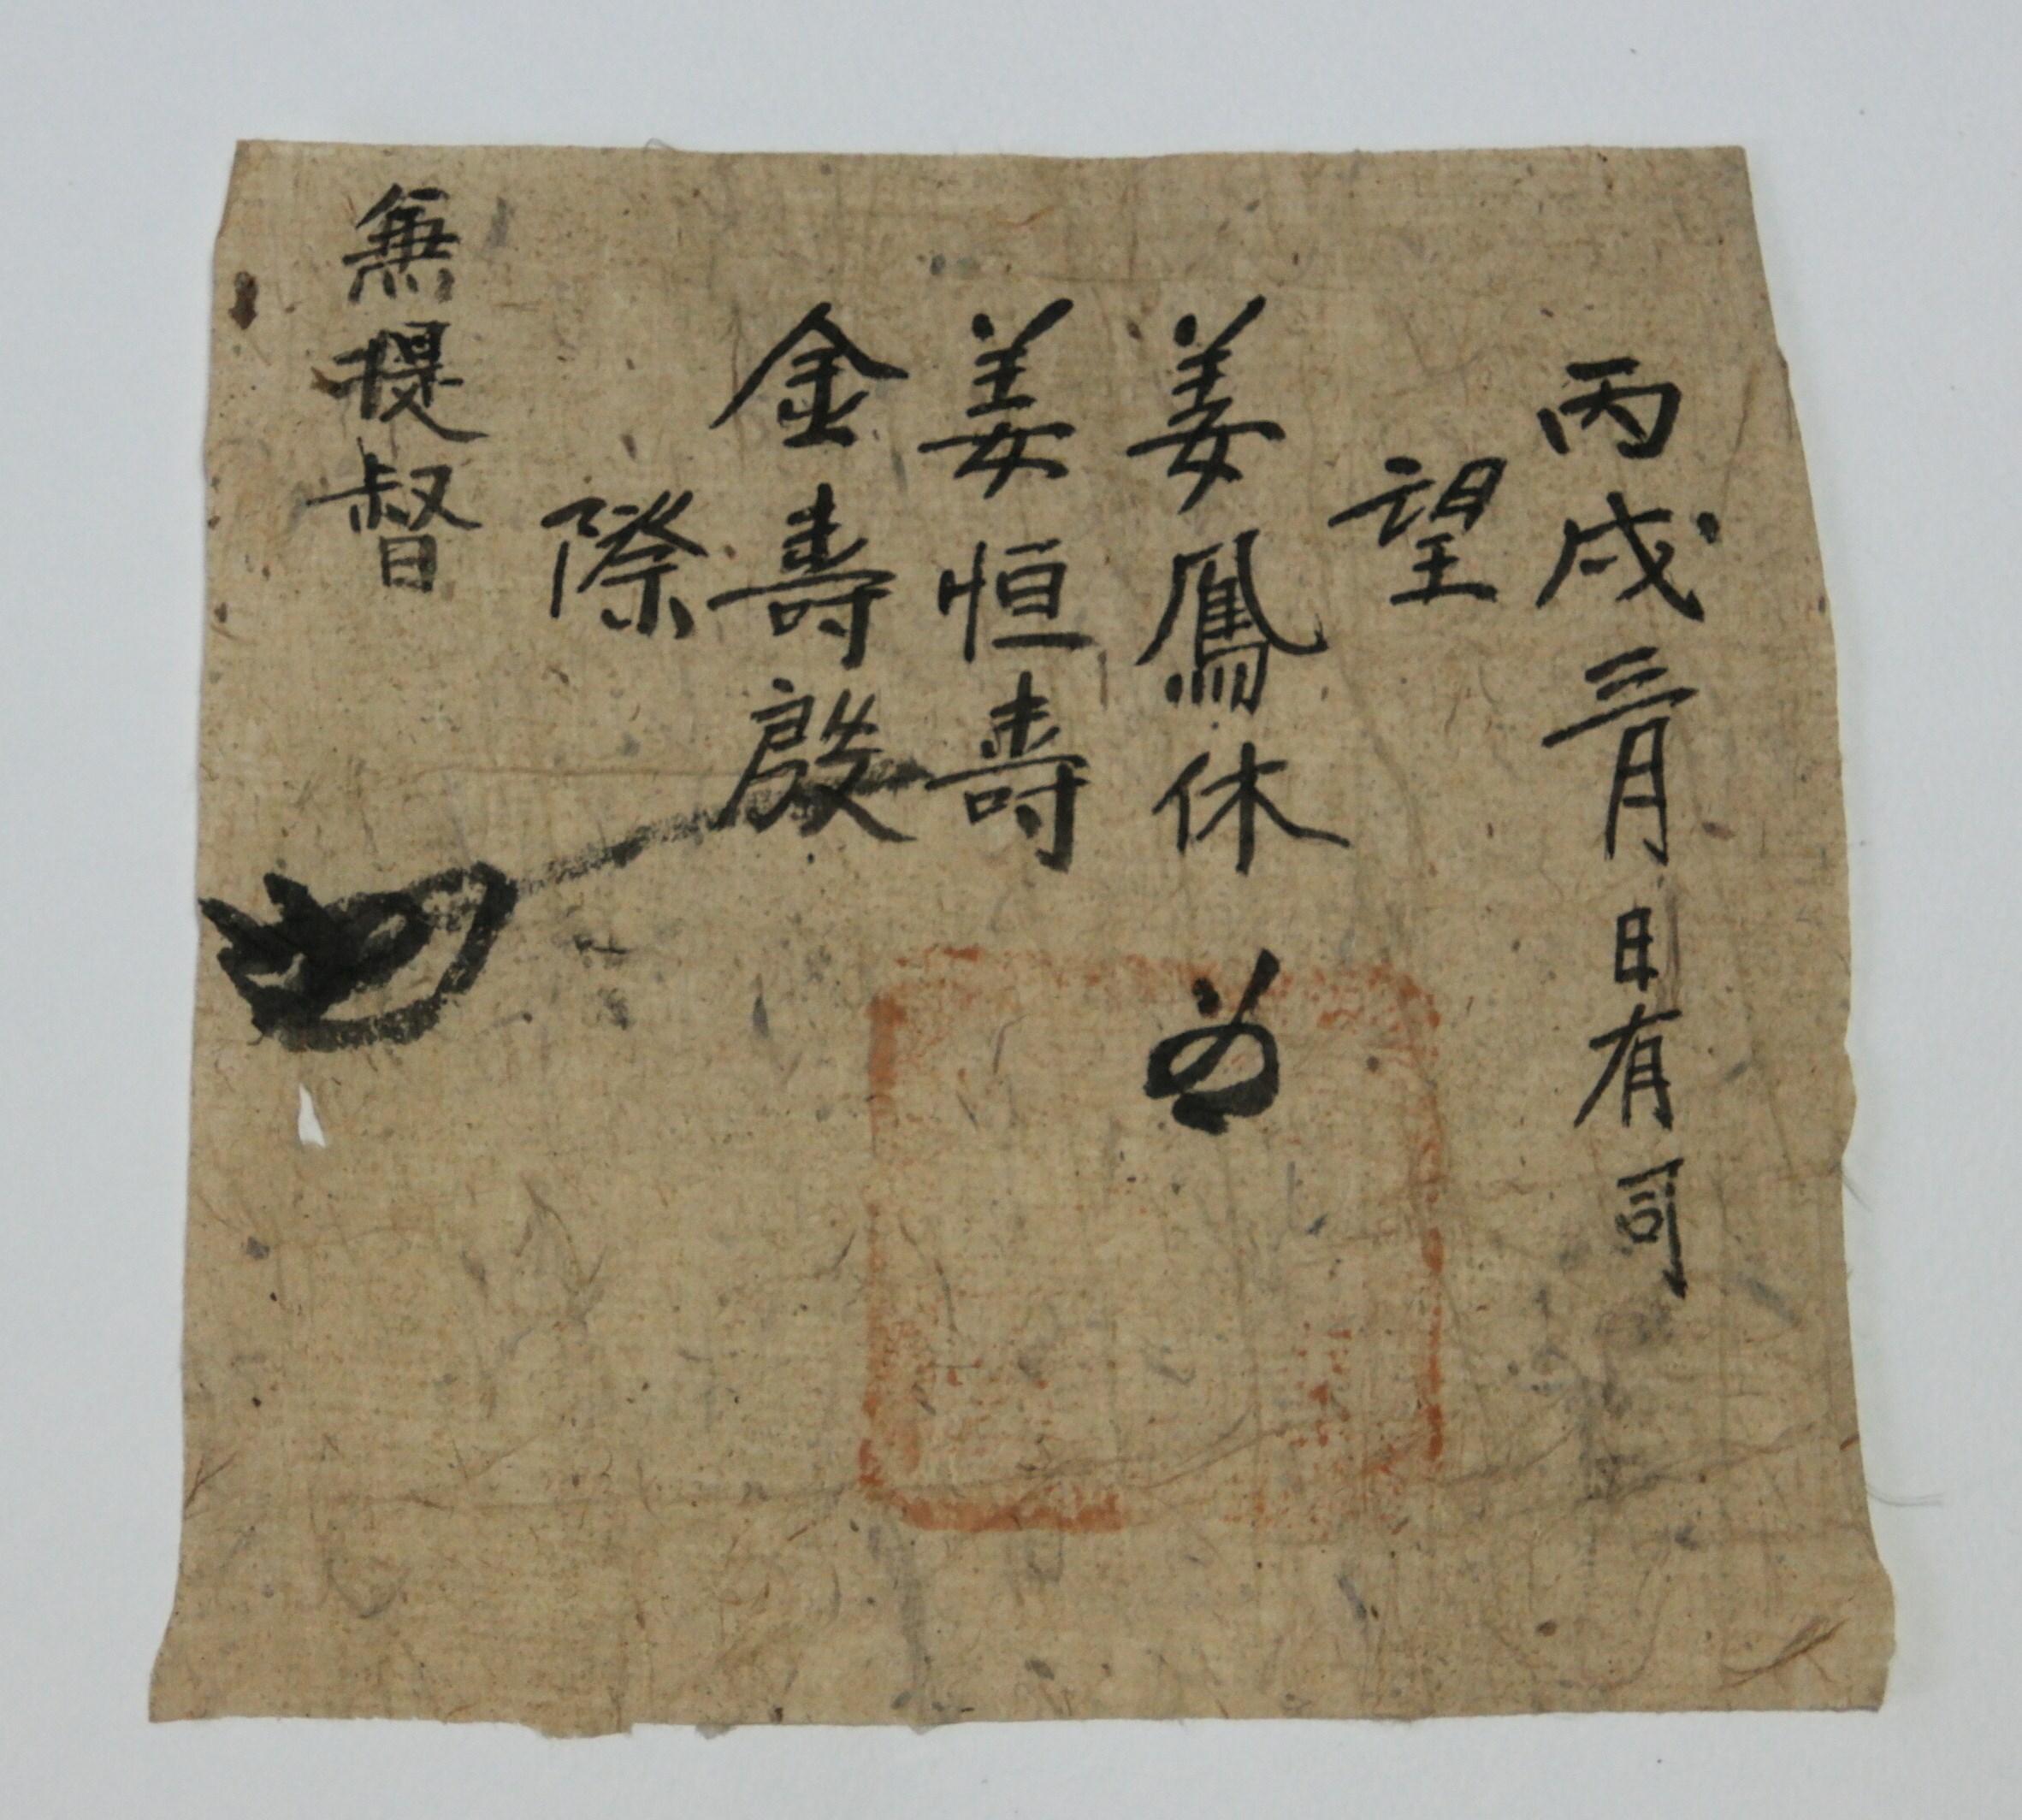 丙戌三月日有司
望
姜鳳休
姜恒壽
金壽殷
際
兼提督